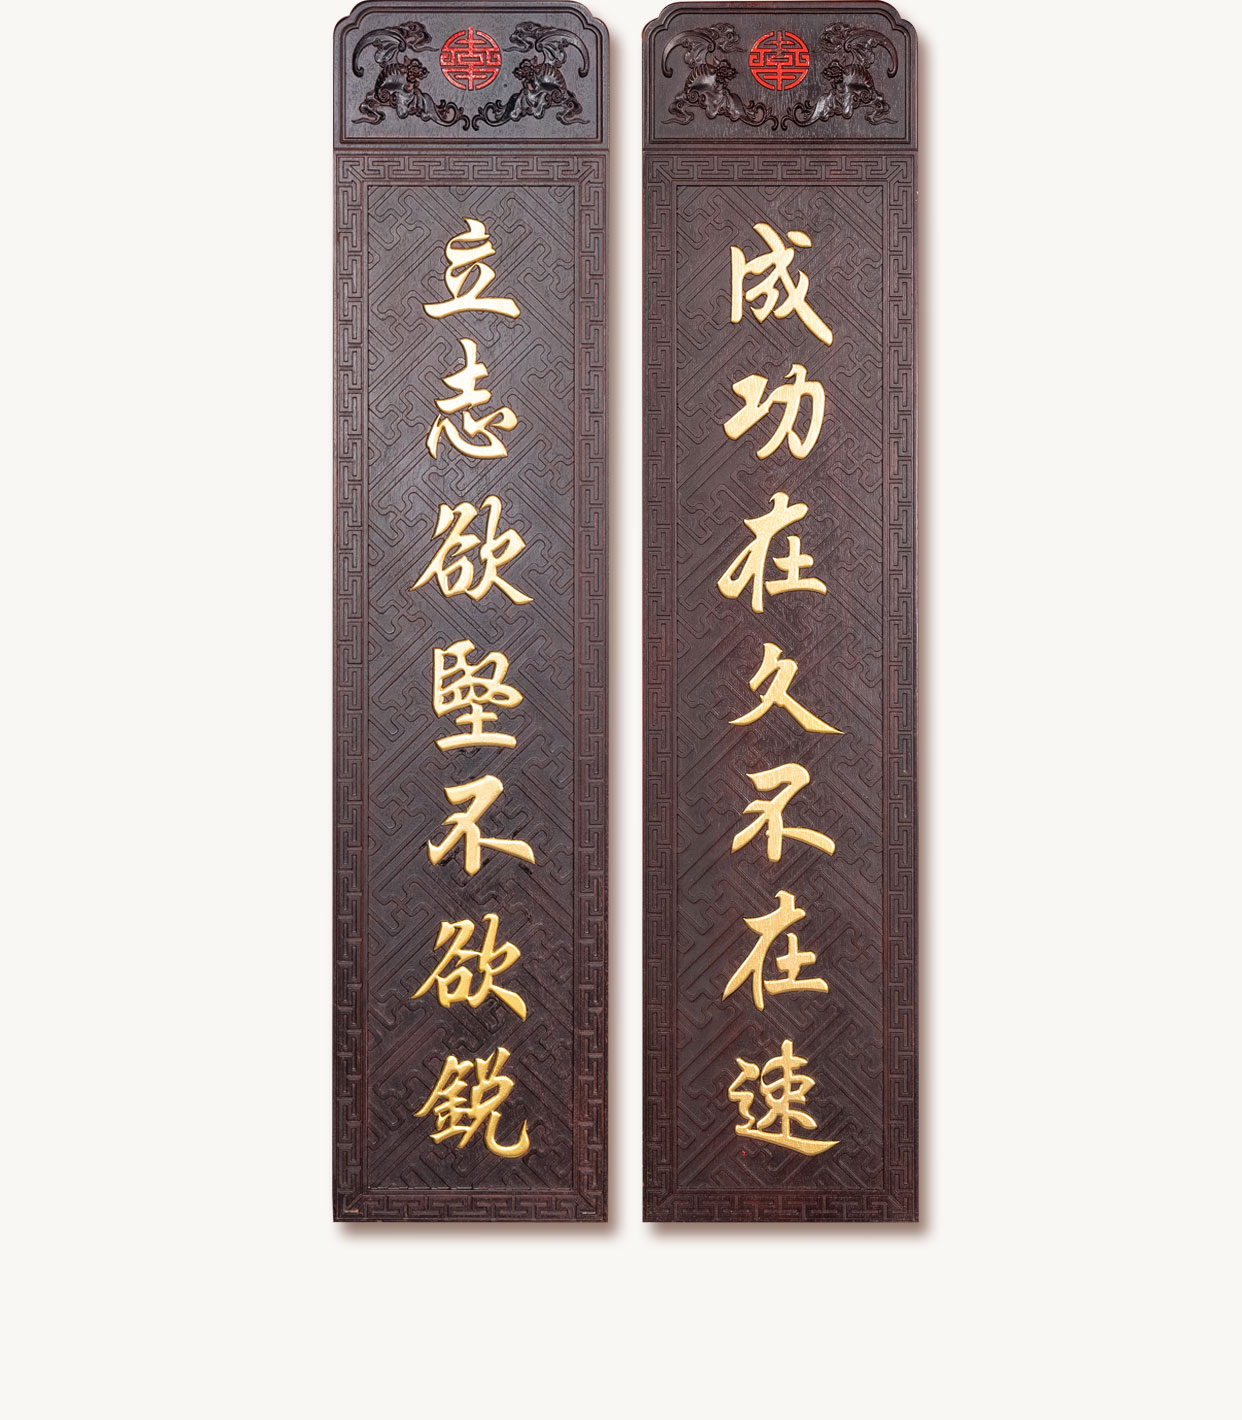 立志欲堅不欲銳
成功在久不在速